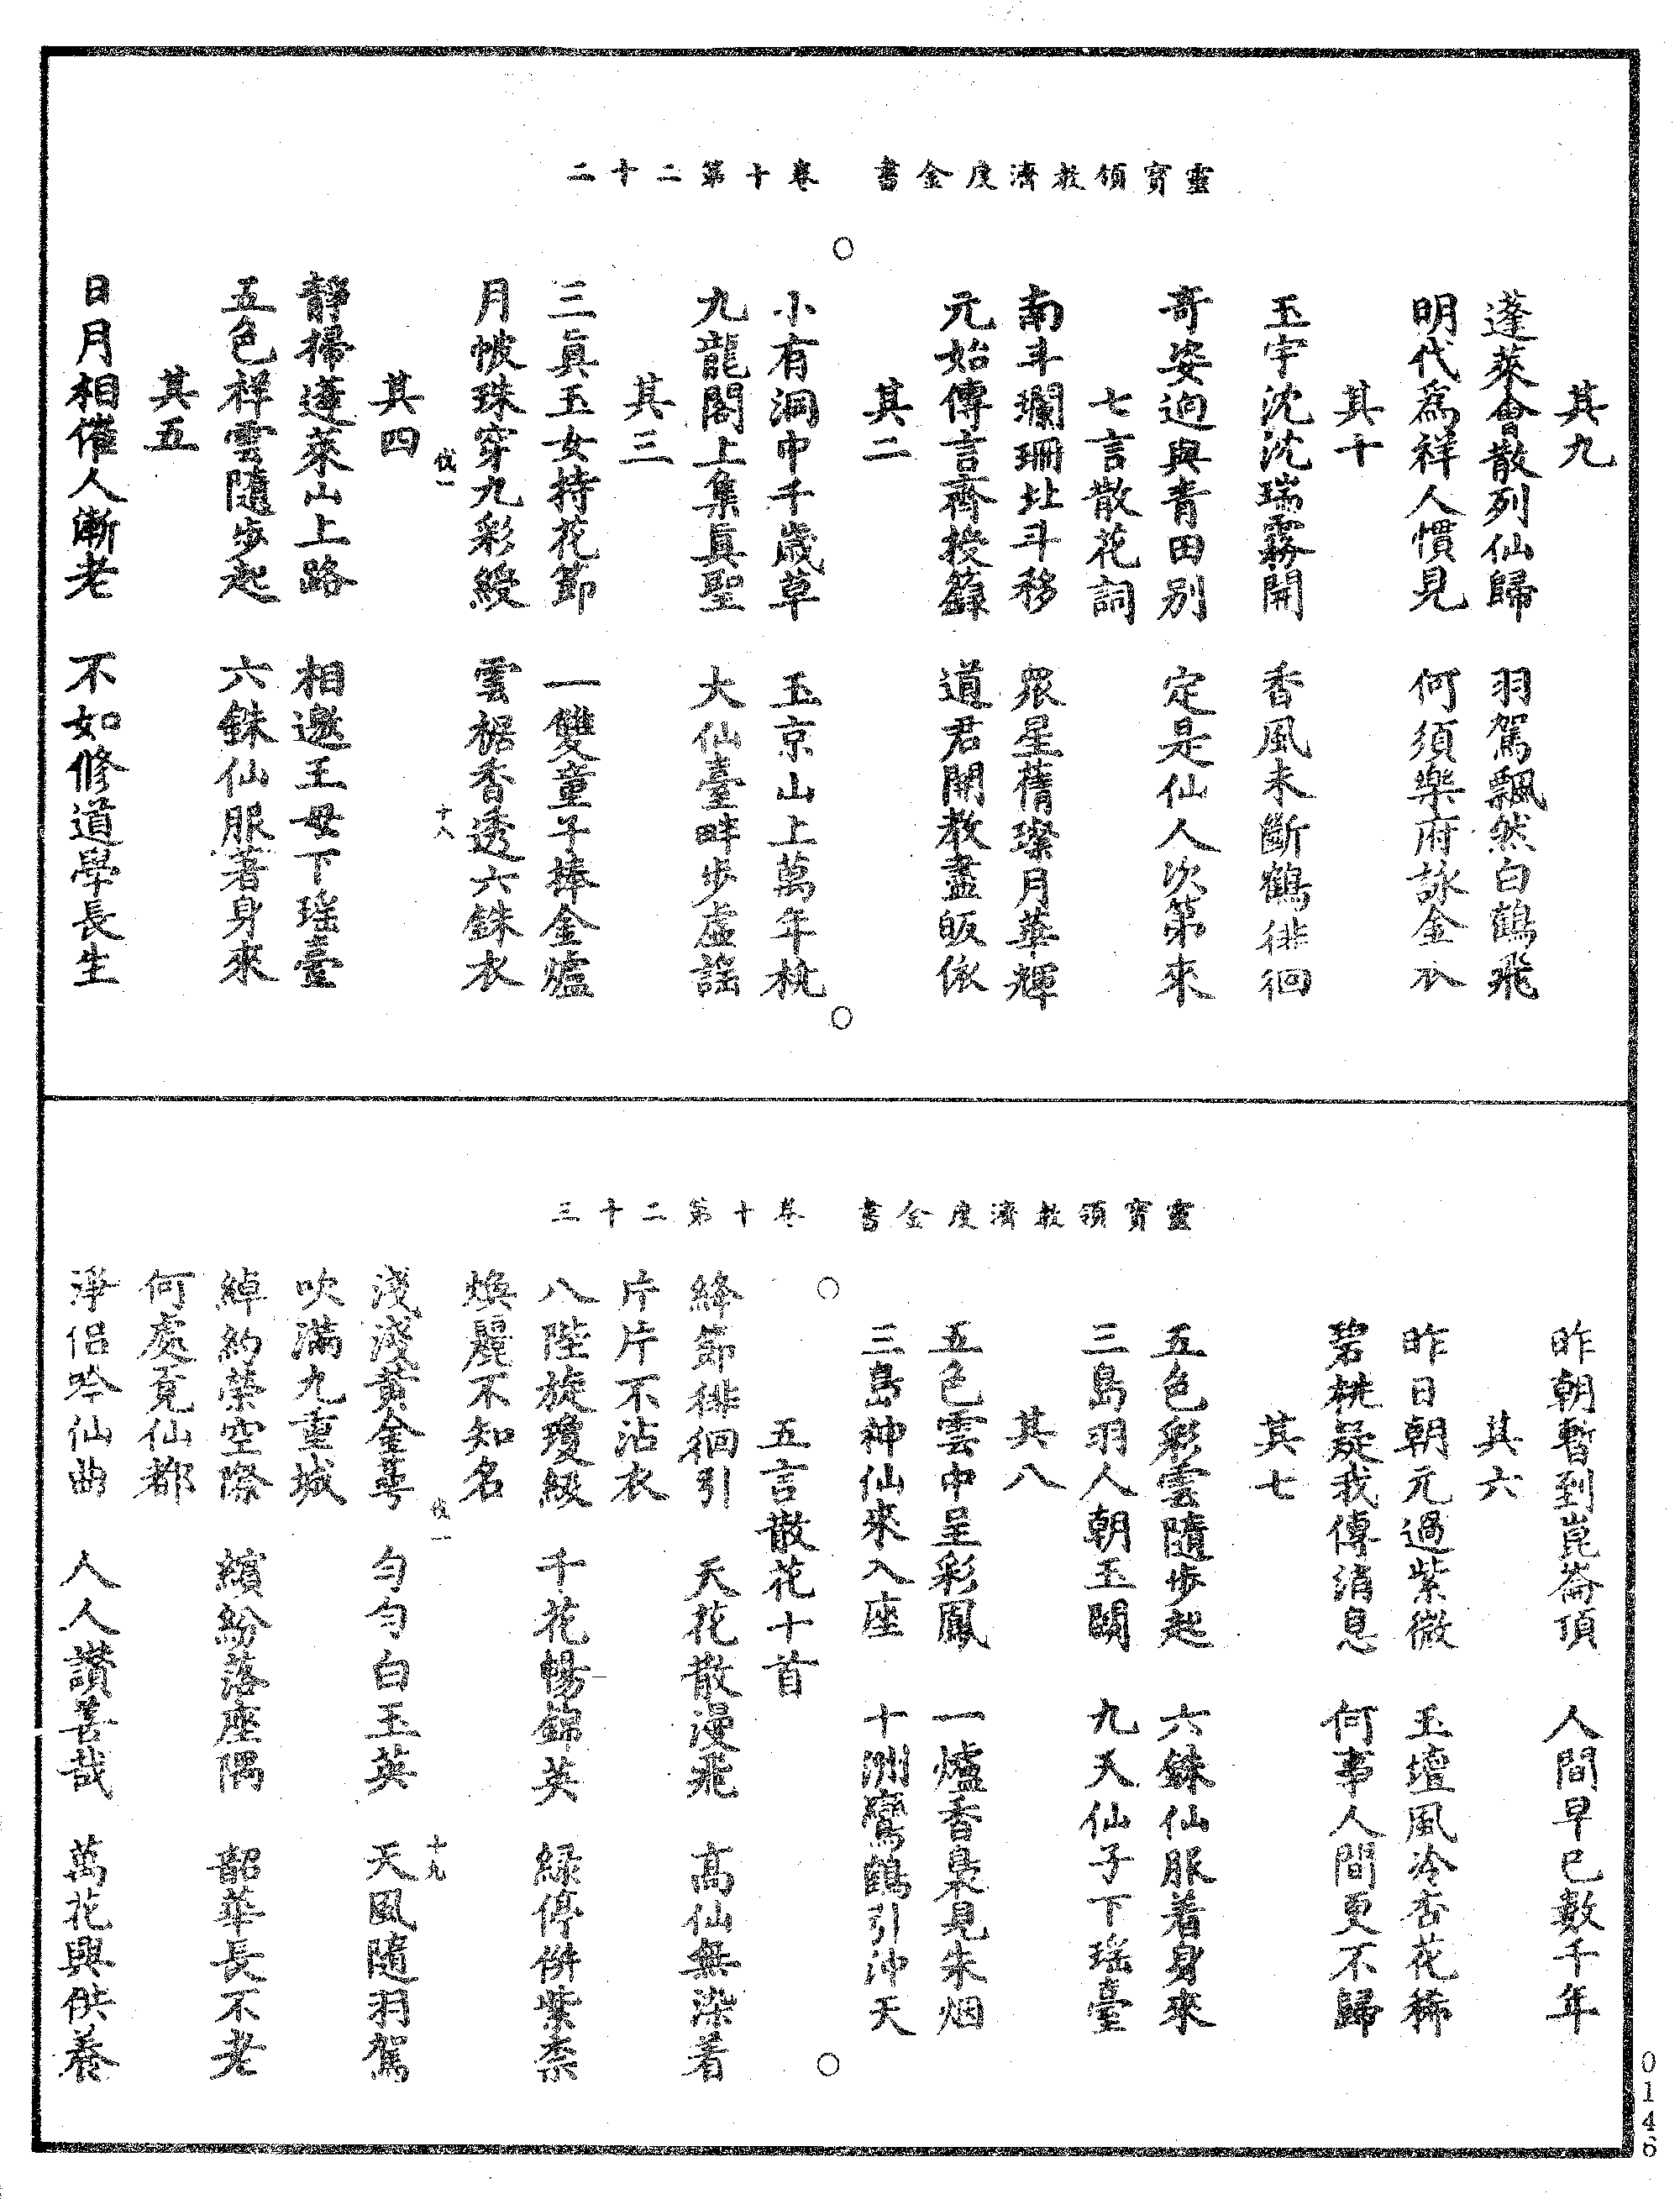 靈寶領教濟度金書　卷十第二十二
其九
蓬萊會散列仙歸　羽駕飄然白鶴飛
明代為祥人慣見　何須樂府詠金衣
其十
玉宇沈沈瑞霧開　香風未斷鶴徘徊
奇姿迥與青田別　定是仙人次第來
七言散花詞
南斗斕珊北斗移　眾星蒨璨月華輝
元始傳言齊授籙　道君開教盡皈依
其二
小有洞中千歲草　玉京山上萬年枕
九龍閣上集真聖　大仙臺畔步虛謠
其三
三真玉女持花節　一雙童子捧金爐
月帔珠穿九彩綬　雲裾香透六銖衣
伐一　十八
其四
靜掃蓬萊山上路　相邀王母下瑤臺
五色祥雲隨步起　六銖仙服著身來
其五
日月相催人漸老　不如修道學長生
靈寶領教濟度金書　卷十第二十三
昨朝暫到崑崙頂　人間早已數千年
其六
昨日朝元過紫微　玉壇風冷杏花稀
碧桃疑我傳消息　何事人間更不歸
其七
五色彩雲隨步起　六銖仙服着身來
三島羽人朝玉闕　九天仙子下瑤臺
其八
五色雲中呈彩鳳　一爐香裊見朱烟
三島神仙來入座　十洲鸞鶴引沖天
五言散花十首
絳節徘徊引　天花散漫飛　高仙無染着
片片不沾衣
八陛旋瓊級　千花暢錦英　綠停併紫柰
煥麗不知名
淺淺黃金萼　勻勻白玉英　天風隨羽駕
伐一　十九
吹滿九重城
綽約縈空際　繽紛落座隅　韶華長不老
何處覓仙都
淨侶吟仙曲　人人讚善哉　萬花興供養
0146